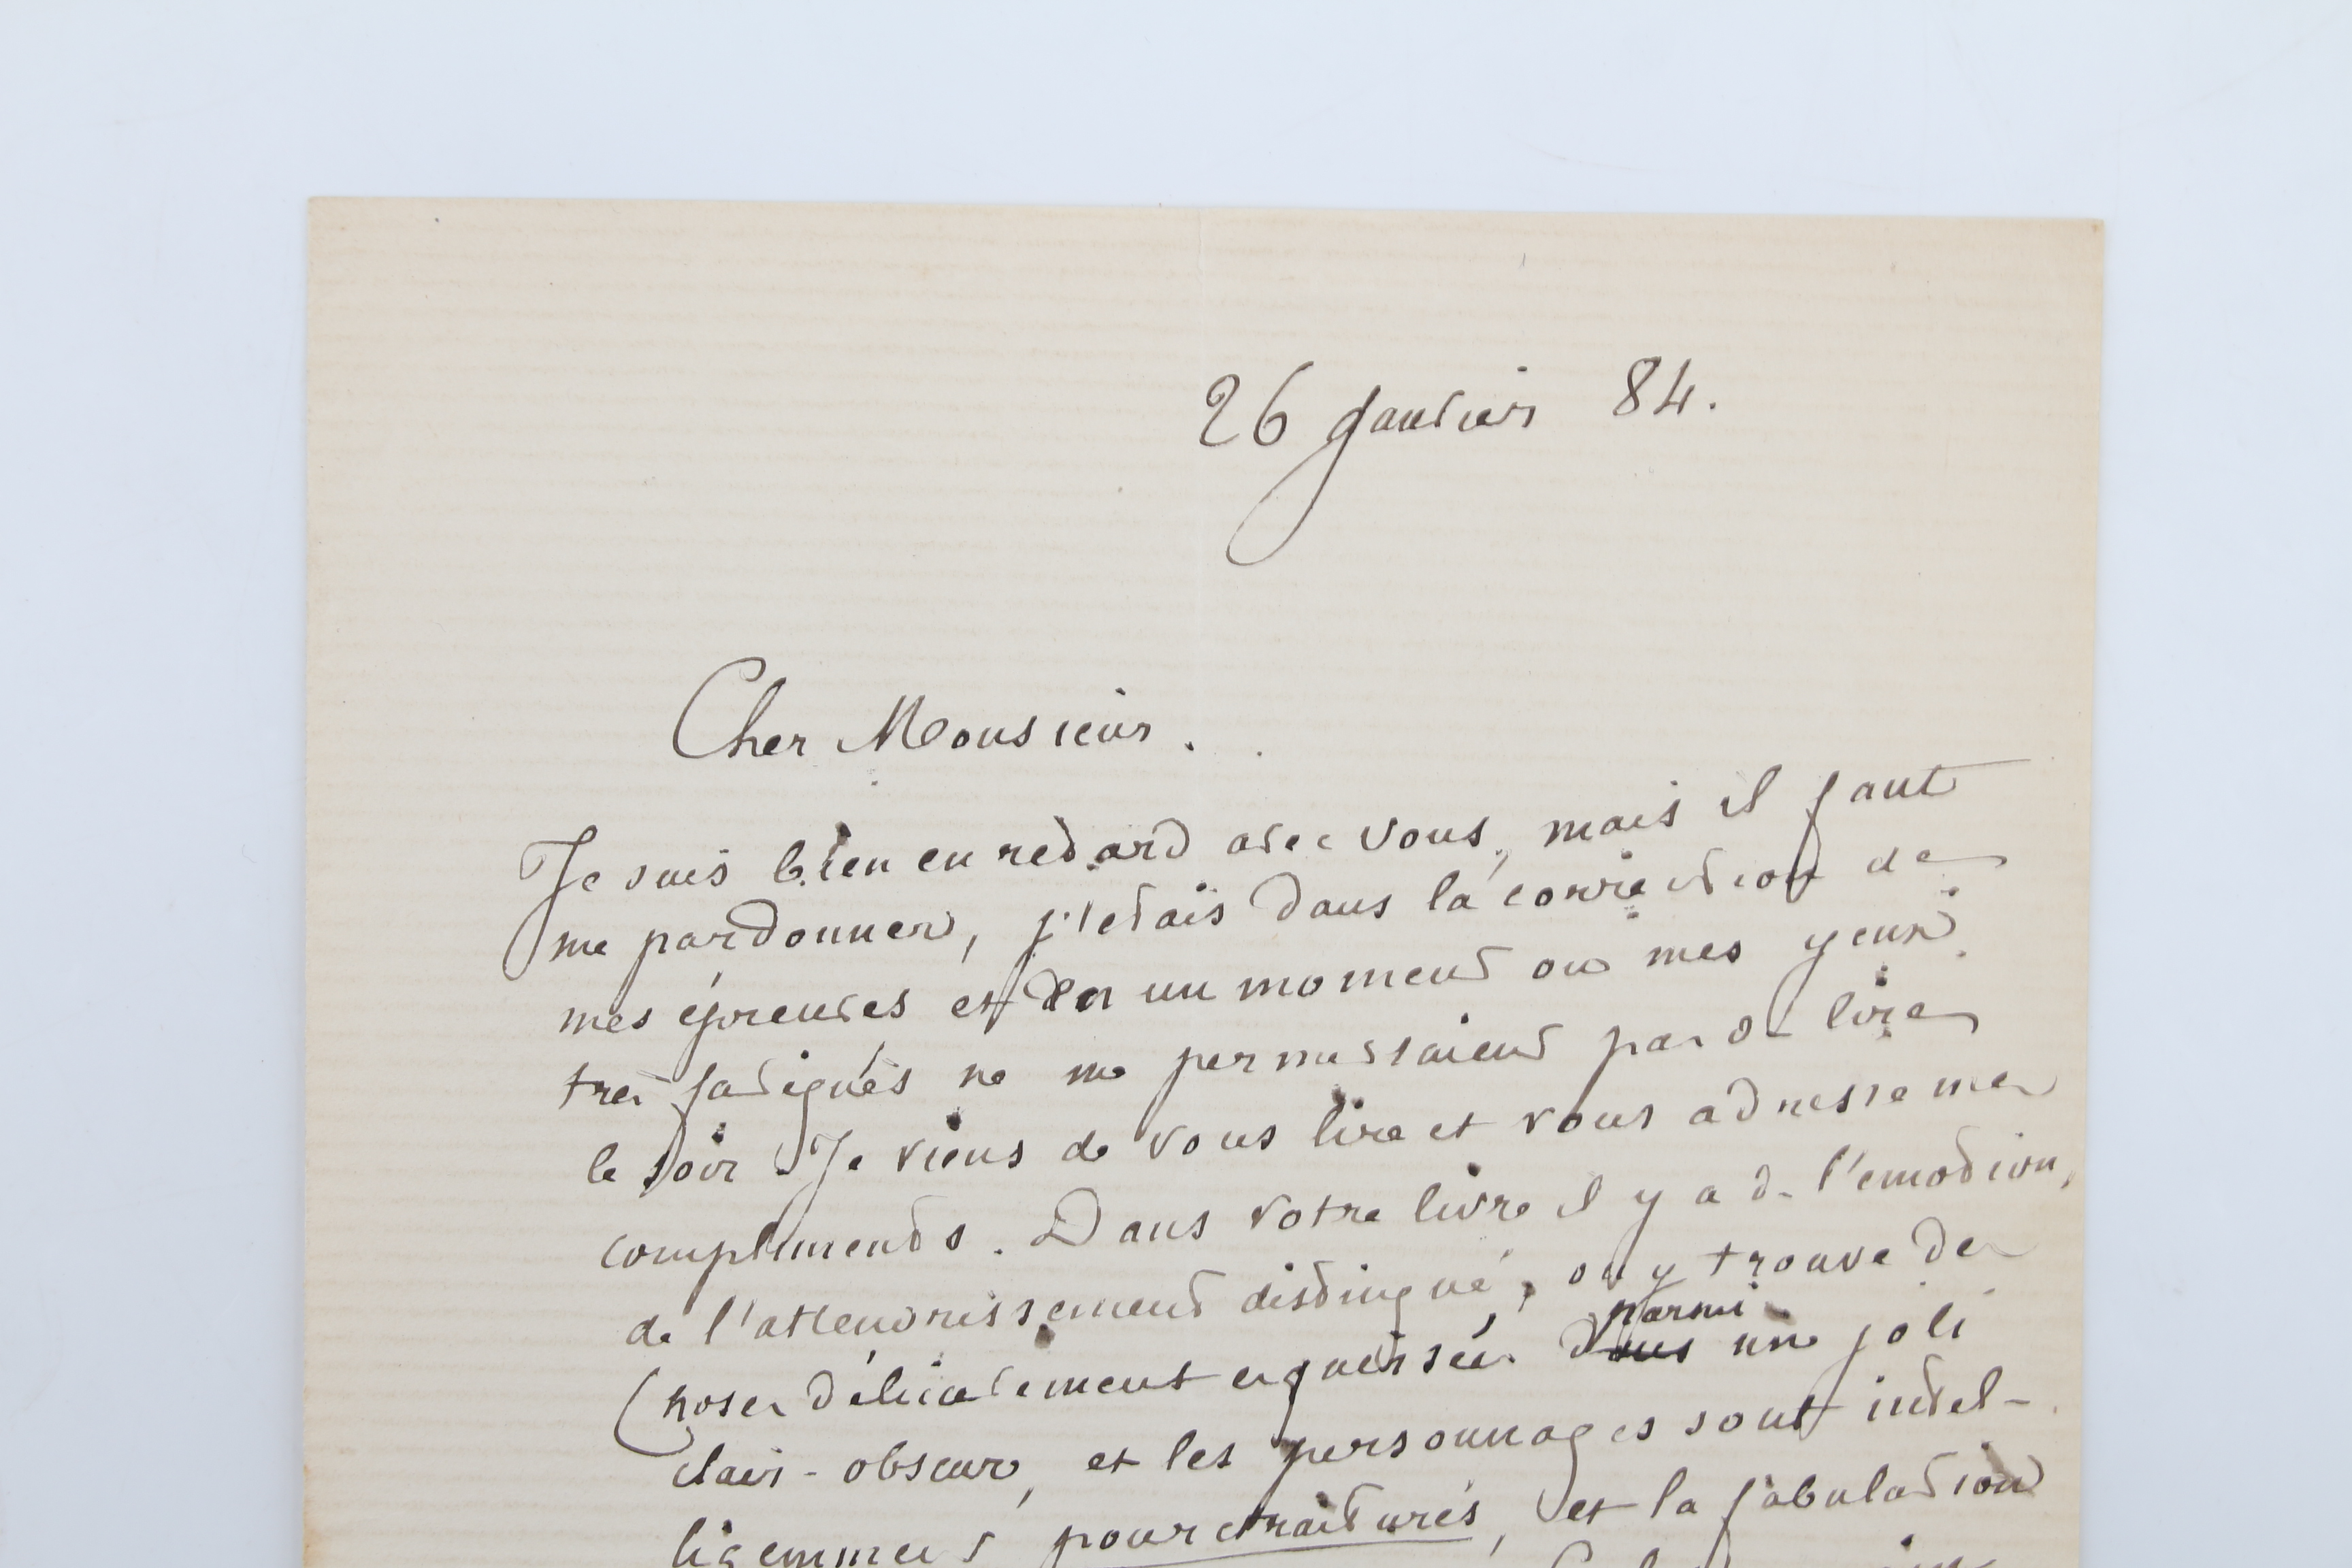 26 Janvier 84.
Cher Monsieur.
Je suis bien en retard avec vous, mais il faut
me pardonner, j'étais dans la correction de
mes épreuves et en un moment ou mes yeux
tres fatigués ne me permettaient pas de lire
le soir. Je viens de vous lire et vous adresse mes
compliments. Dans votre livre il y a de l'emotion,
de l'attendrissement distingué, on y trouve des
choses délicatement esquissées parmi dans un joli
clair-obscur, et les personnages sont intel-
ligemment pourctraiturés, et la fabulation